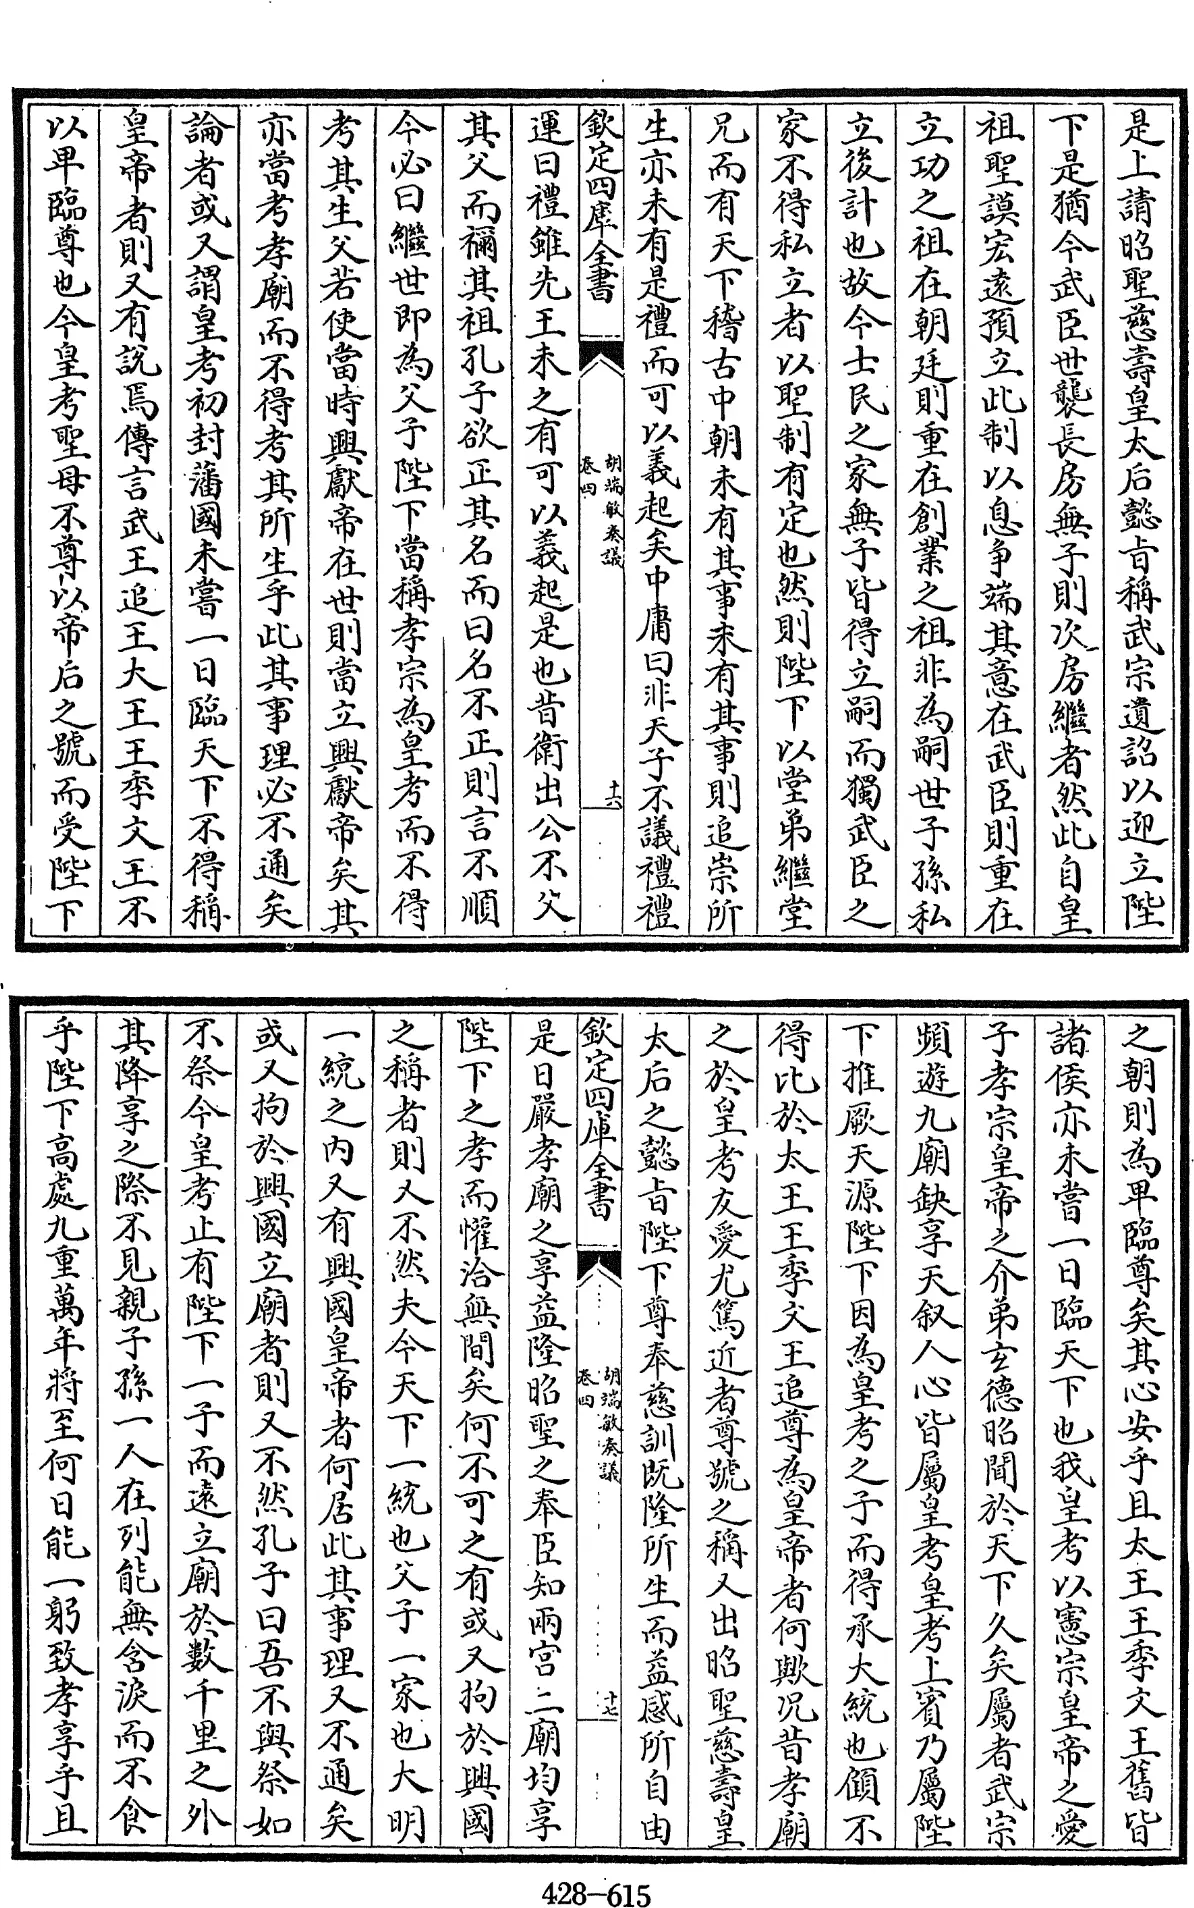 是上請昭聖慈壽皇太后懿旨稱武宗遺詔以迎立陛
下是猶今武臣世襲長房無子則次房繼者然此自皇
祖聖謨宏逺預立此制以息争端其意在武臣則重在
立功之祖在朝廷則重在創業之祖非為嗣世子孫私
立後計也故今士民之家無子皆得立嗣而獨武臣之
家不得私立者以聖制有定也然則陛下以堂弟繼堂
兄而有天下稽古中朝未有其事未有其事則追崇所
生亦未有是禮而可以義起矣中庸曰非天子不議禮禮
欽定四庫全書
胡端敏奏議
卷四
十六
運曰禮雖先王未之有可以義起是也昔衛出公不父
其父而禰其祖孔子欲正其名而曰名不正則言不順
今必曰繼世即為父子陛下當稱孝宗為皇考而不得
考其生父若使當時興獻帝在世則當立興獻帝矣其
亦當考孝廟而不得考其所生乎此其事理必不通矣
論者或又謂皇考初封藩國未嘗一日臨天下不得稱
皇帝者則又有説焉傳言武王追王大王王季文王不
以卑臨尊也今皇考聖母不尊以帝后之號而受陛下
之朝則為卑臨尊矣其心安乎且太王王季文王舊皆
諸侯亦未嘗一日臨天下也我皇考以憲宗皇帝之愛
子孝宗皇帝之介弟玄德昭聞於天下久矣屬者武宗
頻遊九廟缺享天叙人心皆屬皇考皇考上賓乃屬陛
下推厥天源陛下因為皇考之子而得承大統也顧不
得比於太王王季文王追尊為皇帝者何歟况昔孝廟
之於皇考友愛尤篤近者尊號之稱又出昭聖慈壽皇
太后之懿旨陛下尊奉慈訓既隆所生而益感所自由
欽定四庫全書
胡端敏奏議
卷四
十七
是日嚴孝廟之享益隆昭聖之奉臣知兩宫二廟均享
陛下之孝而懽洽無間矣何不可之有或又拘於興國
之稱者則又不然夫今天下一統也父子一家也大明
一統之内又有興國皇帝者何居此其事理又不通矣
或又拘於興國立廟者則又不然孔子曰吾不與祭如
不祭今皇考止有陛下一子而逺立廟於數千里之外
其降享之際不見親子孫一人在列能無含淚而不食
乎陛下高處九重萬年將至何日能一躬致孝享乎且
428-615